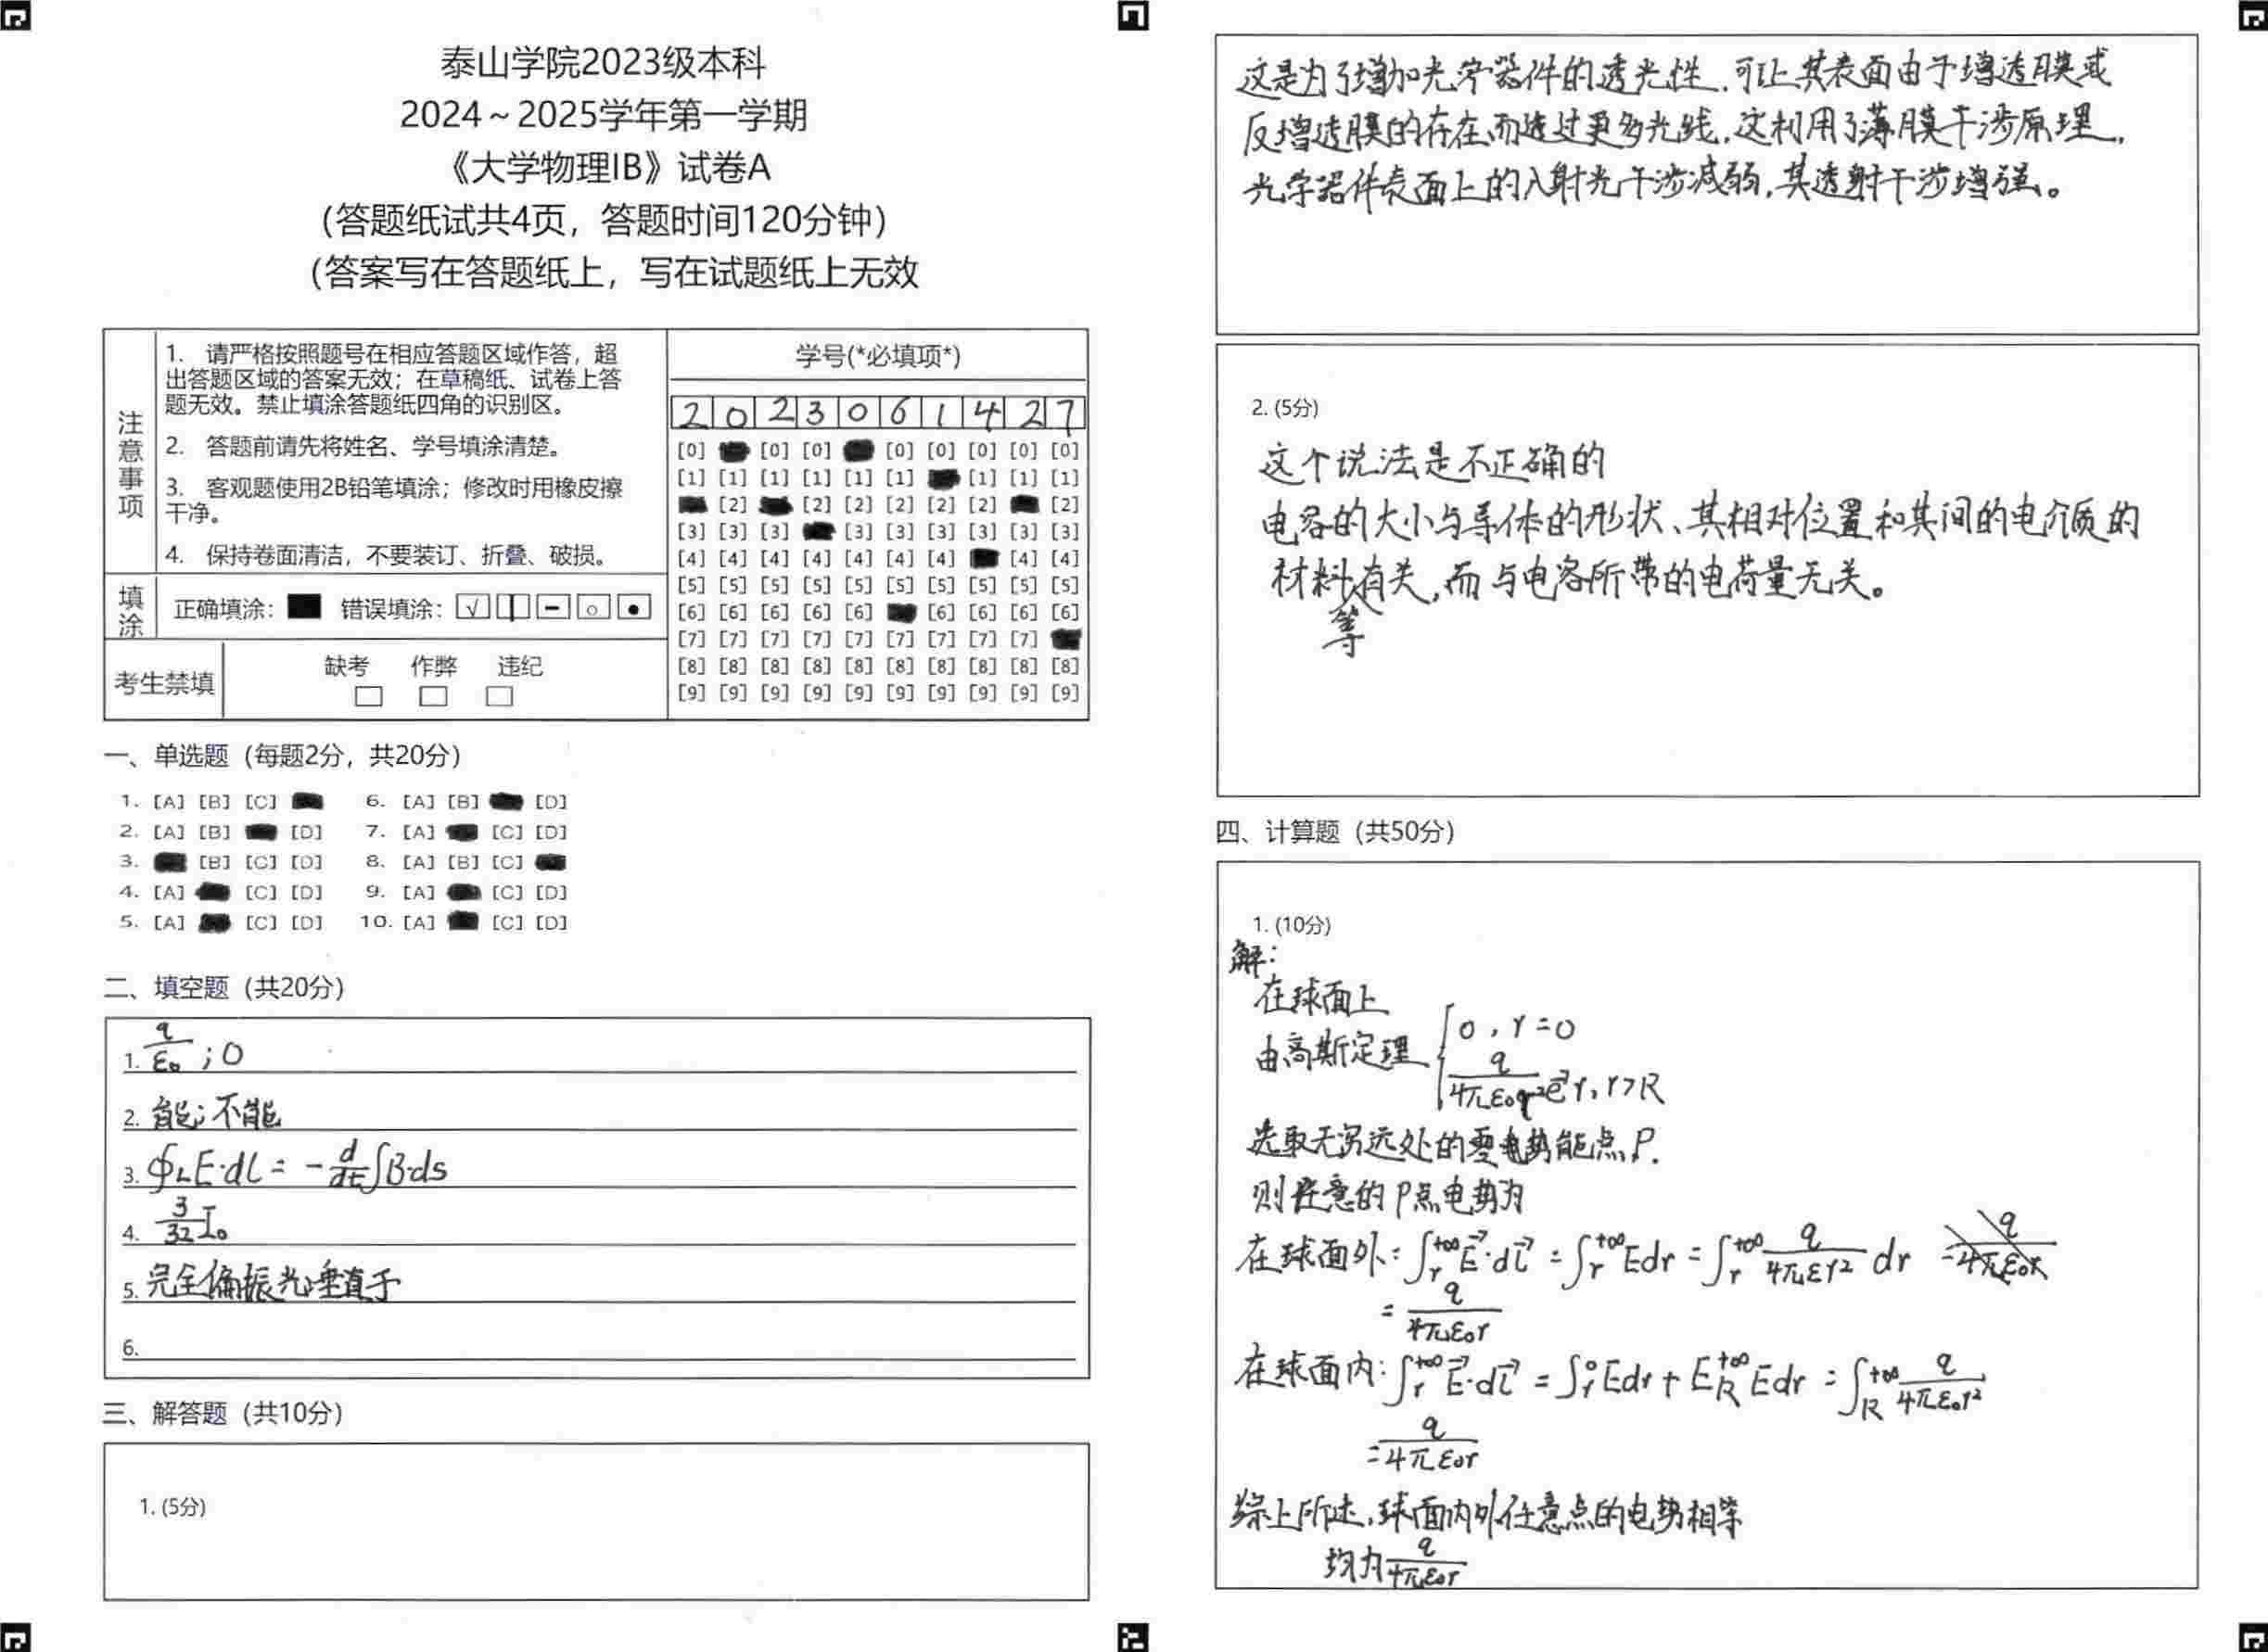 泰山学院2023级本科
2024～2025学年第一学期
《大学物理IB》试卷A
（答题纸试共4页，答题时间120分钟）
（答案写在答题纸上，写在试题纸上无效
注意事项
1. 请严格按照题号在相应答题区域作答，超
出答题区域的答案无效；在草稿纸、试卷上答
题无效。禁止填涂答题纸四角的识别区。
2. 答题前请先将姓名、学号填涂清楚。
3. 客观题使用2B铅笔填涂；修改时用橡皮擦
干净。
4. 保持卷面清洁，不要装订、折叠、破损。
填涂
正确填涂： 错误填涂：
考生禁填
缺考 作弊 违纪
学号(*必填项*)
2 0 2 3 0 6 1 4 2 7
[0] [0] [0] [0] [0] [0] [0] [0]
[1] [1] [1] [1] [1] [1] [1] [1] [1]
[2] [2] [2] [2] [2] [2] [2]
[3] [3] [3] [3] [3] [3] [3] [3] [3]
[4] [4] [4] [4] [4] [4] [4] [4] [4]
[5] [5] [5] [5] [5] [5] [5] [5] [5] [5]
[6] [6] [6] [6] [6] [6] [6] [6] [6]
[7] [7] [7] [7] [7] [7] [7] [7] [7]
[8] [8] [8] [8] [8] [8] [8] [8] [8] [8]
[9] [9] [9] [9] [9] [9] [9] [9] [9] [9]
一、单选题（每题2分，共20分）
1. [A] [B] [C] 6. [A] [B] [D]
2. [A] [B] [D] 7. [A] [C] [D]
3. [B] [C] [D] 8. [A] [B] [C]
4. [A] [C] [D] 9. [A] [C] [D]
5. [A] [C] [D] 10. [A] [C] [D]
二、填空题（共20分）
1. q/ε₀ ; 0
2. 能; 不能
3. ∮L E·dl = - d/dt ∫B·ds
4. 3/32 I₀
5. 完全偏振光;垂直于
6.
三、解答题（共10分）
1. (5分)
这是为了增加光学器件的透光性，可让其表面由于增透膜或
反增透膜的存在而透过更多光线，这利用了薄膜干涉原理，
光学器件表面上的入射光干涉减弱，其透射干涉增强。
2. (5分)
这个说法是不正确的
电容的大小与导体的形状、其相对位置和其间的电介质的
材料等有关，而与电容所带的电荷量无关。
四、计算题（共50分）
1. (10分)
解：
在球面上
由高斯定理 { 0 , r=0
q/4πε₀r² e⃗r, r>R
选取无穷远处的零电势能点P.
则任意的P点电势为
在球面外: ∫r^+∞ E⃗·dl⃗ = ∫r^+∞ Edr = ∫r^+∞ q/4πεr² dr
= q/4πε₀r
在球面内: ∫r^+∞ E⃗·dl⃗ = ∫r^0 Edr + E R^+∞ Edr = ∫R^+∞ q/4πε₀r²
= q/4πε₀r
综上所述，球面内外任意点的电势相等
均为 q/4πε₀r